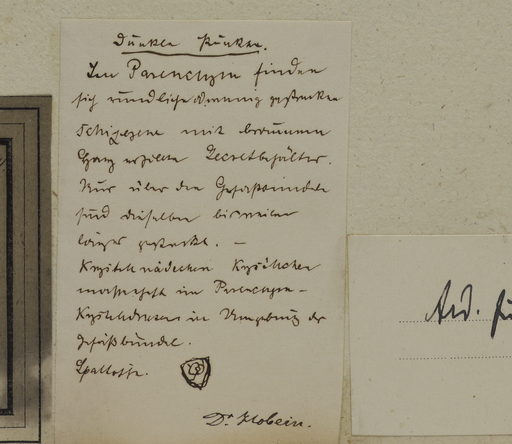 Dunkle Punkte.
Im Parenchym finden
sich rundliche wenig gestreckte
schizogene mit braunem
Harz erfüllte Secretbehälter.
Nur über den Gefässbündeln
sind dieselben bisweilen
länger gestreckt. —
Krystallnädelchen Kryställchen
massenhaft im Parenchym —
Krystalldrusen in Umgebung der
Gefäßbündel.
Dr. Hobein.
Ard.